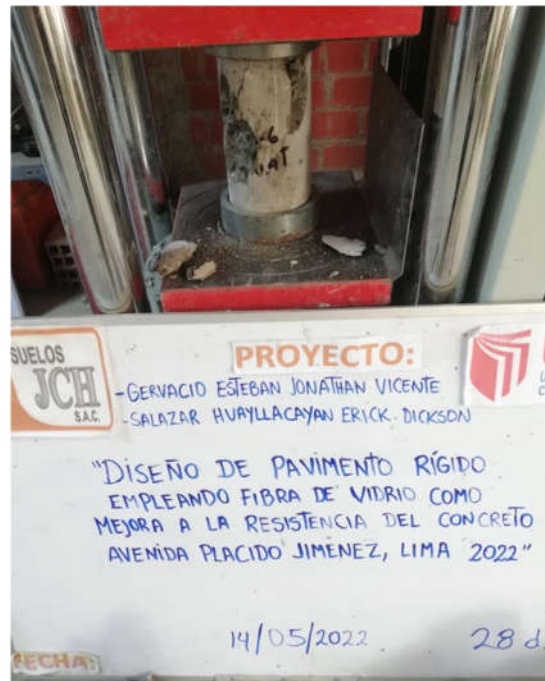 SUELOS
JCH
S.A.C.
PROYECTO:
-GERVACIO ESTEBAN JONATHAN VICENTE
-SALAZAR HUAYLLACAYAN ERICK. DICKSON
"DISEÑO DE PAVIMENTO RÍGIDO
EMPLEANDO FIBRA DE VIDRIO COMO
MEJORA A LA RESISTENCIA DEL CONCRETO
AVENIDA PLACIDO JIMENEZ, LIMA 2022"
14/05/2022 28 d
FECHA: